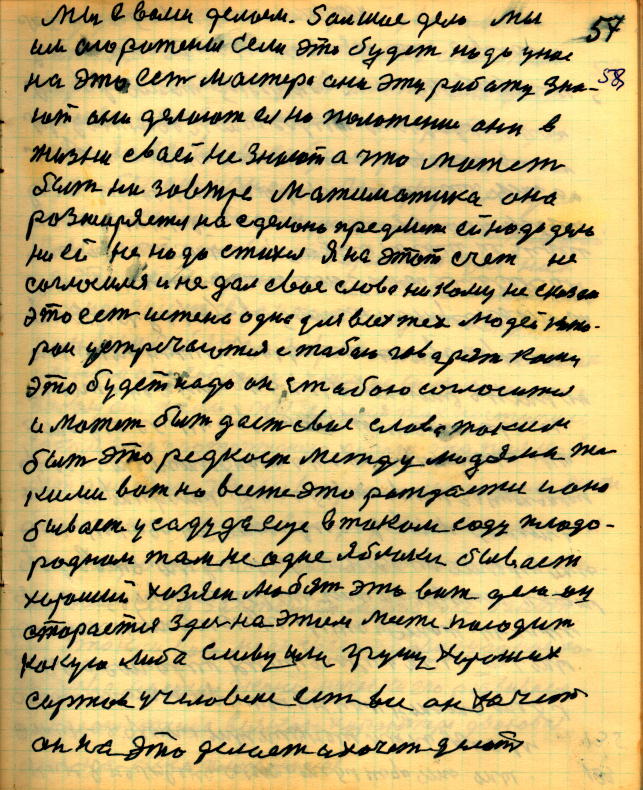 Мы с вами делаем. Балшое дело мы 57
им огорожени Если это будет надо уже
на это Ест мастера они эту работу зна- 58,
ют они делают ея но положение они в
жизни своей не знают а что может
быт на завтре Математика она
розширяется на сделано предмет ей надо дел
но ей не надо стихия Я на этот счет не
согласился и не дал свое слово никому не сказал
это Ест истена одна для всех тех людей кото-
рои устречаются с табою говарят кому
это будет надо он с табою согласится
и может быт даст свае слова таким
быт это редкост между людями та-
кими вот но всеже это рождается и оно
бывает у саду да еще в таком саду плодо-
родном там не одне яблоки бывает
хороший хозяен любят это вот дело он
старается здес на этим месте посодит
какую либа сливу или грушу хороших
сортов у человеке ест все он хочет
он на это делает а хочет делат